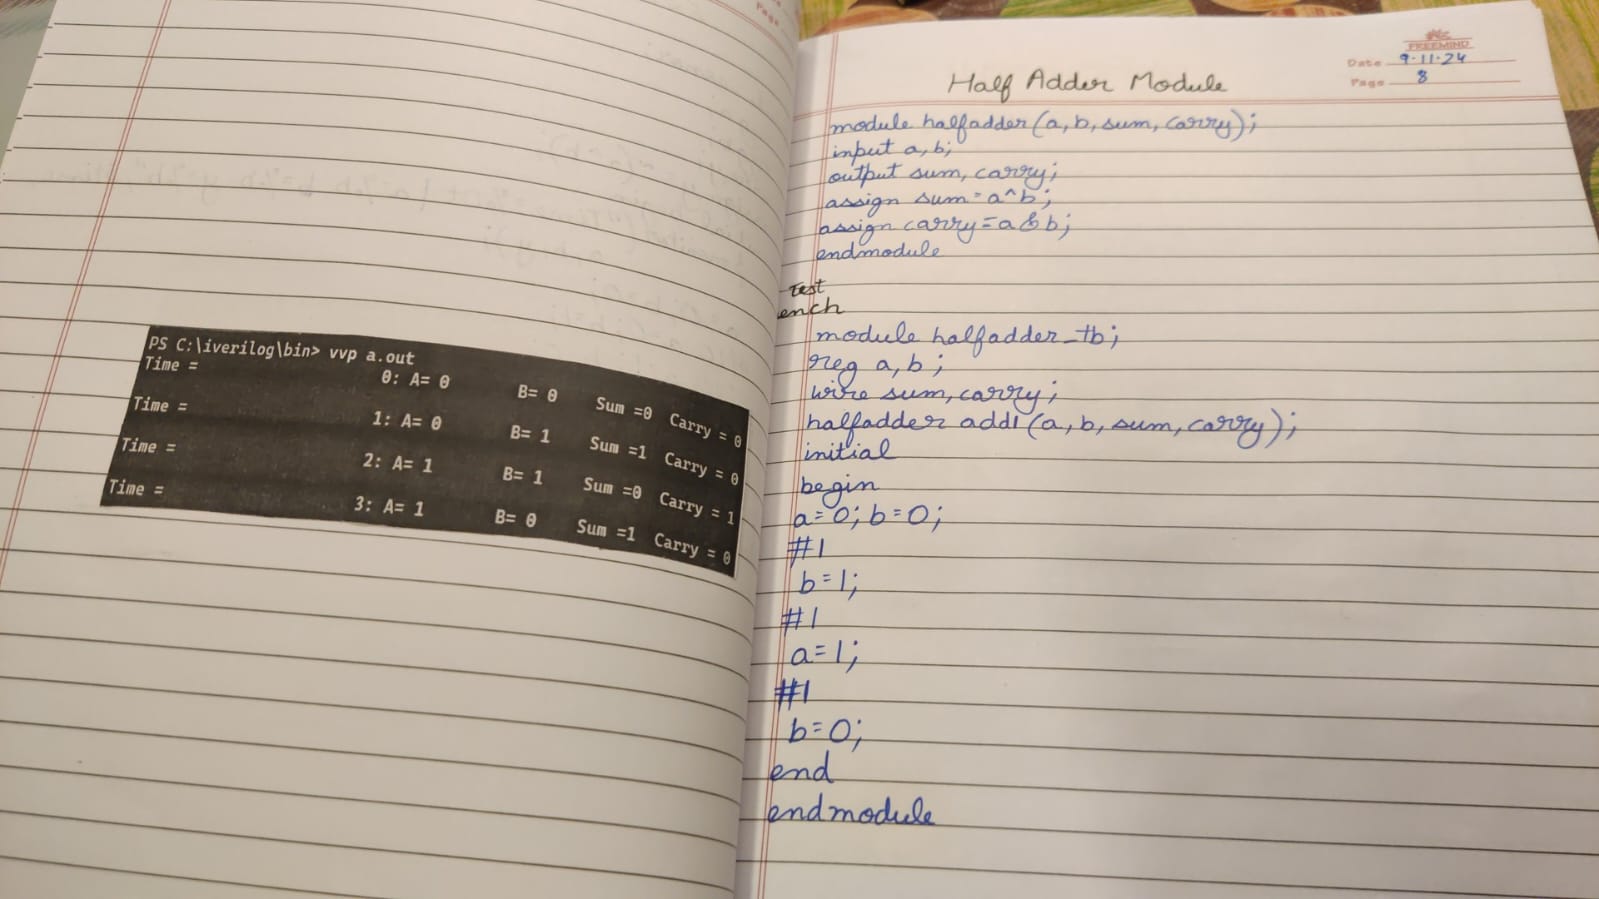 PS C:\iverilog\bin> vvp a.out
Time = 0: A= 0 B= 0 Sum =0 Carry = 0
Time = 1: A= 0 B= 1 Sum =1 Carry = 0
Time = 2: A= 1 B= 1 Sum =0 Carry = 1
Time = 3: A= 1 B= 0 Sum =1 Carry = 0
FREEMIND
Date 9.11.24
Page 8
Half Adder Module
module halfadder (a, b, sum, carry);
input a, b;
output sum, carry;
assign sum = a^b;
assign carry = a & b;
endmodule
Test
ench
module halfadder_tb;
reg a, b;
wire sum, carry;
halfadder add1 (a, b, sum, carry);
initial
begin
a=0; b=0;
#1
b=1;
#1
a=1;
#1
b=0;
end
endmodule